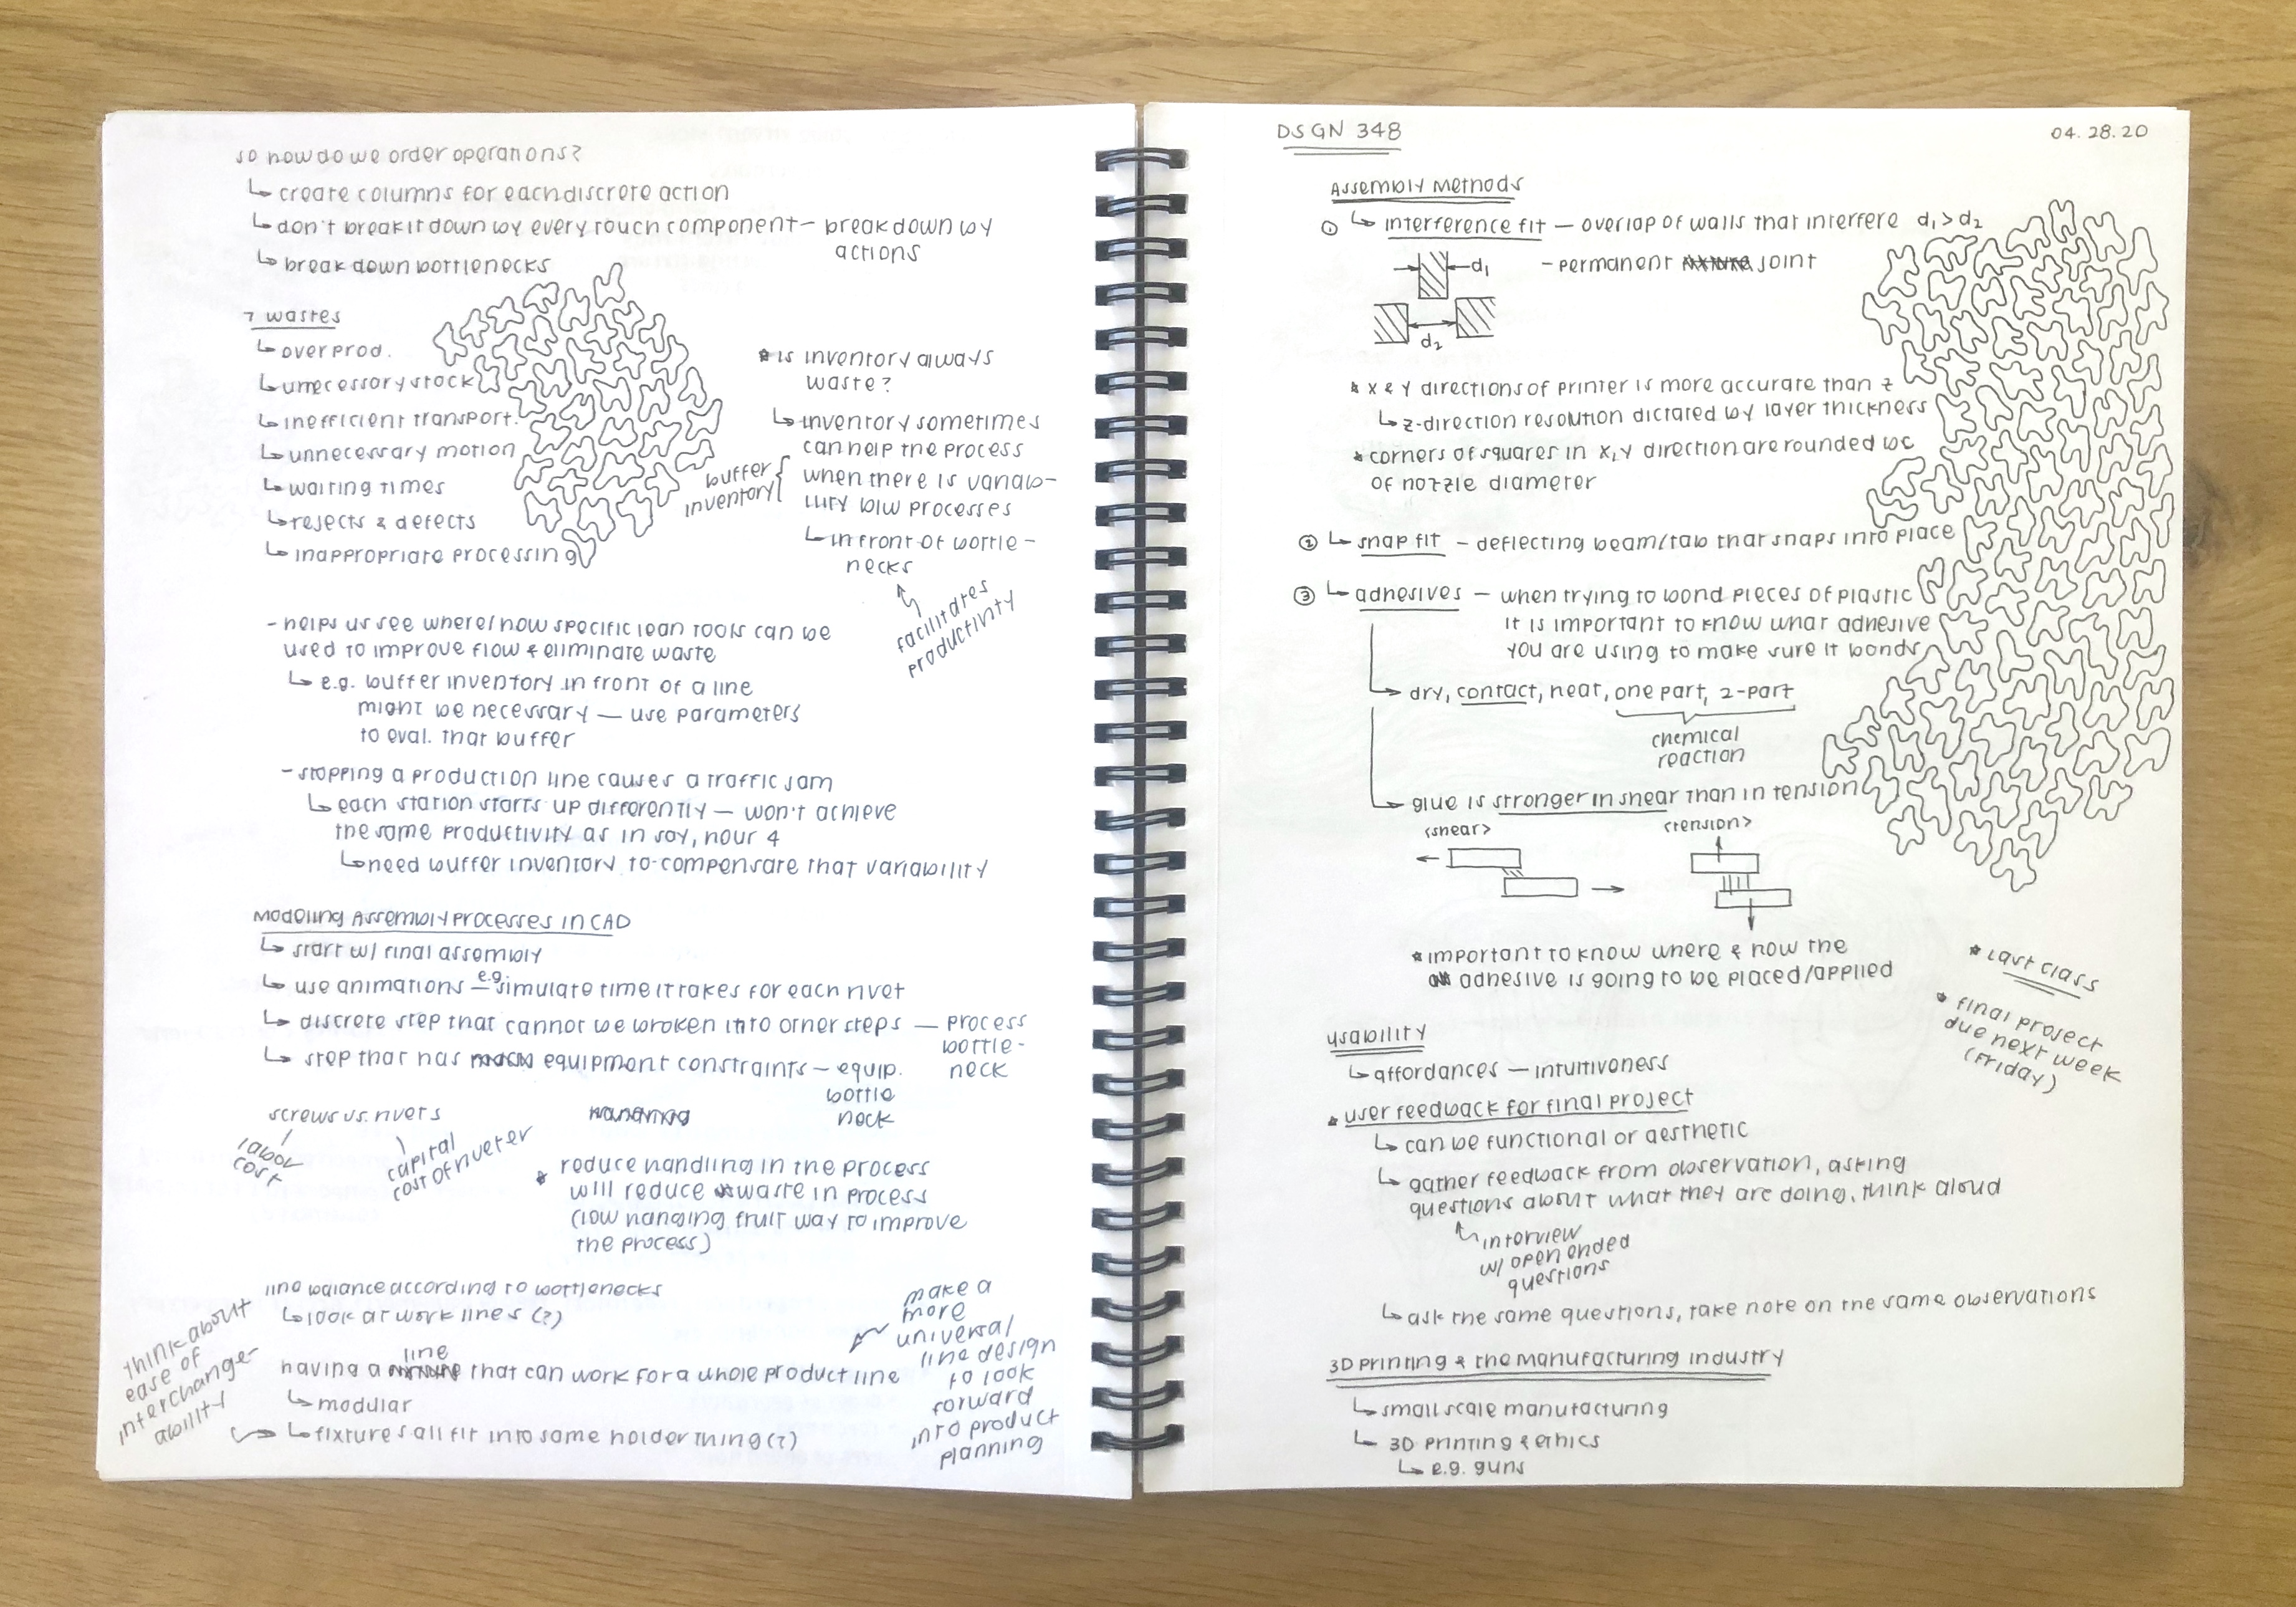 so how do we order operations?
↳ create columns for each discrete action
↳ don't break it down by every touch component – break down by
actions
↳ break down bottlenecks
7 wastes
↳ overprod.
↳ unnecessory stock
↳ inefficient transport.
↳ unnecessary motion
↳ waiting times
↳ rejects & defects
↳ inappropriate processing
* is inventory always
waste?
↳ inventory sometimes
can help the process
when there is variab-
ility b/w processes
↳ in front of bottle-
necks
buffer
inventory
facilitates
productivity
- helps us see where/how specific lean tools can be
used to improve flow & eliminate waste
↳ e.g. buffer inventory in front of a line
might be necessary – use parameters
to eval. that buffer
- stopping a production line causes a traffic jam
↳ each station starts up differently – won't achieve
the same productivity as in say, hour 4
↳ need buffer inventory to compensate that variability
Modeling Assembly Processes in CAD
↳ start w/ final assembly
↳ use animations – e.g. simulate time it takes for each rivet
↳ discrete step that cannot be broken into other steps – process
bottle-
neck
↳ step that has equipment constraints – equip.
bottle
neck
screws vs. rivets
labor
cost
capital
cost of riveter
* reduce handling in the process
will reduce waste in process
(low hanging fruit way to improve
the process)
line balance according to bottlenecks
↳ look at work lines (?)
having a line that can work for a whole product line
↳ modular
↳ fixtures all fit into same holder thing (?)
think about
ease of
interchange-
ability
make a
more
universal
line design
to look
forward
into product
planning
DSGN 348
04.28.20
Assembly Methods
① ↳ interference fit – overlap of walls that interfere d₁ > d₂
- permanent joint
d₁
d₂
* x & y directions of printer is more accurate than z
↳ z-direction resolution dictated by layer thickness
* corners of squares in x,y direction are rounded bc
of nozzle diameter
② ↳ snap fit – deflecting beam/tab that snaps into place
③ ↳ adhesives – when trying to bond pieces of plastic
it is important to know what adhesive
you are using to make sure it bonds
↳ dry, contact, heat, one part, 2-part
chemical
reaction
↳ glue is stronger in shear than in tension
<shear>
<tension>
* important to know where & how the
adhesive is going to be placed/applied
* last class
* final project
due next week
(Friday)
usability
↳ affordances – intuitiveness
* user feedback for final project
↳ can be functional or aesthetic
↳ gather feedback from observation, asking
questions about what they are doing, think aloud
interview
w/ open ended
questions
↳ ask the same questions, take note on the same observations
3D Printing & the Manufacturing Industry
↳ small scale manufacturing
↳ 3D printing & ethics
↳ e.g. guns